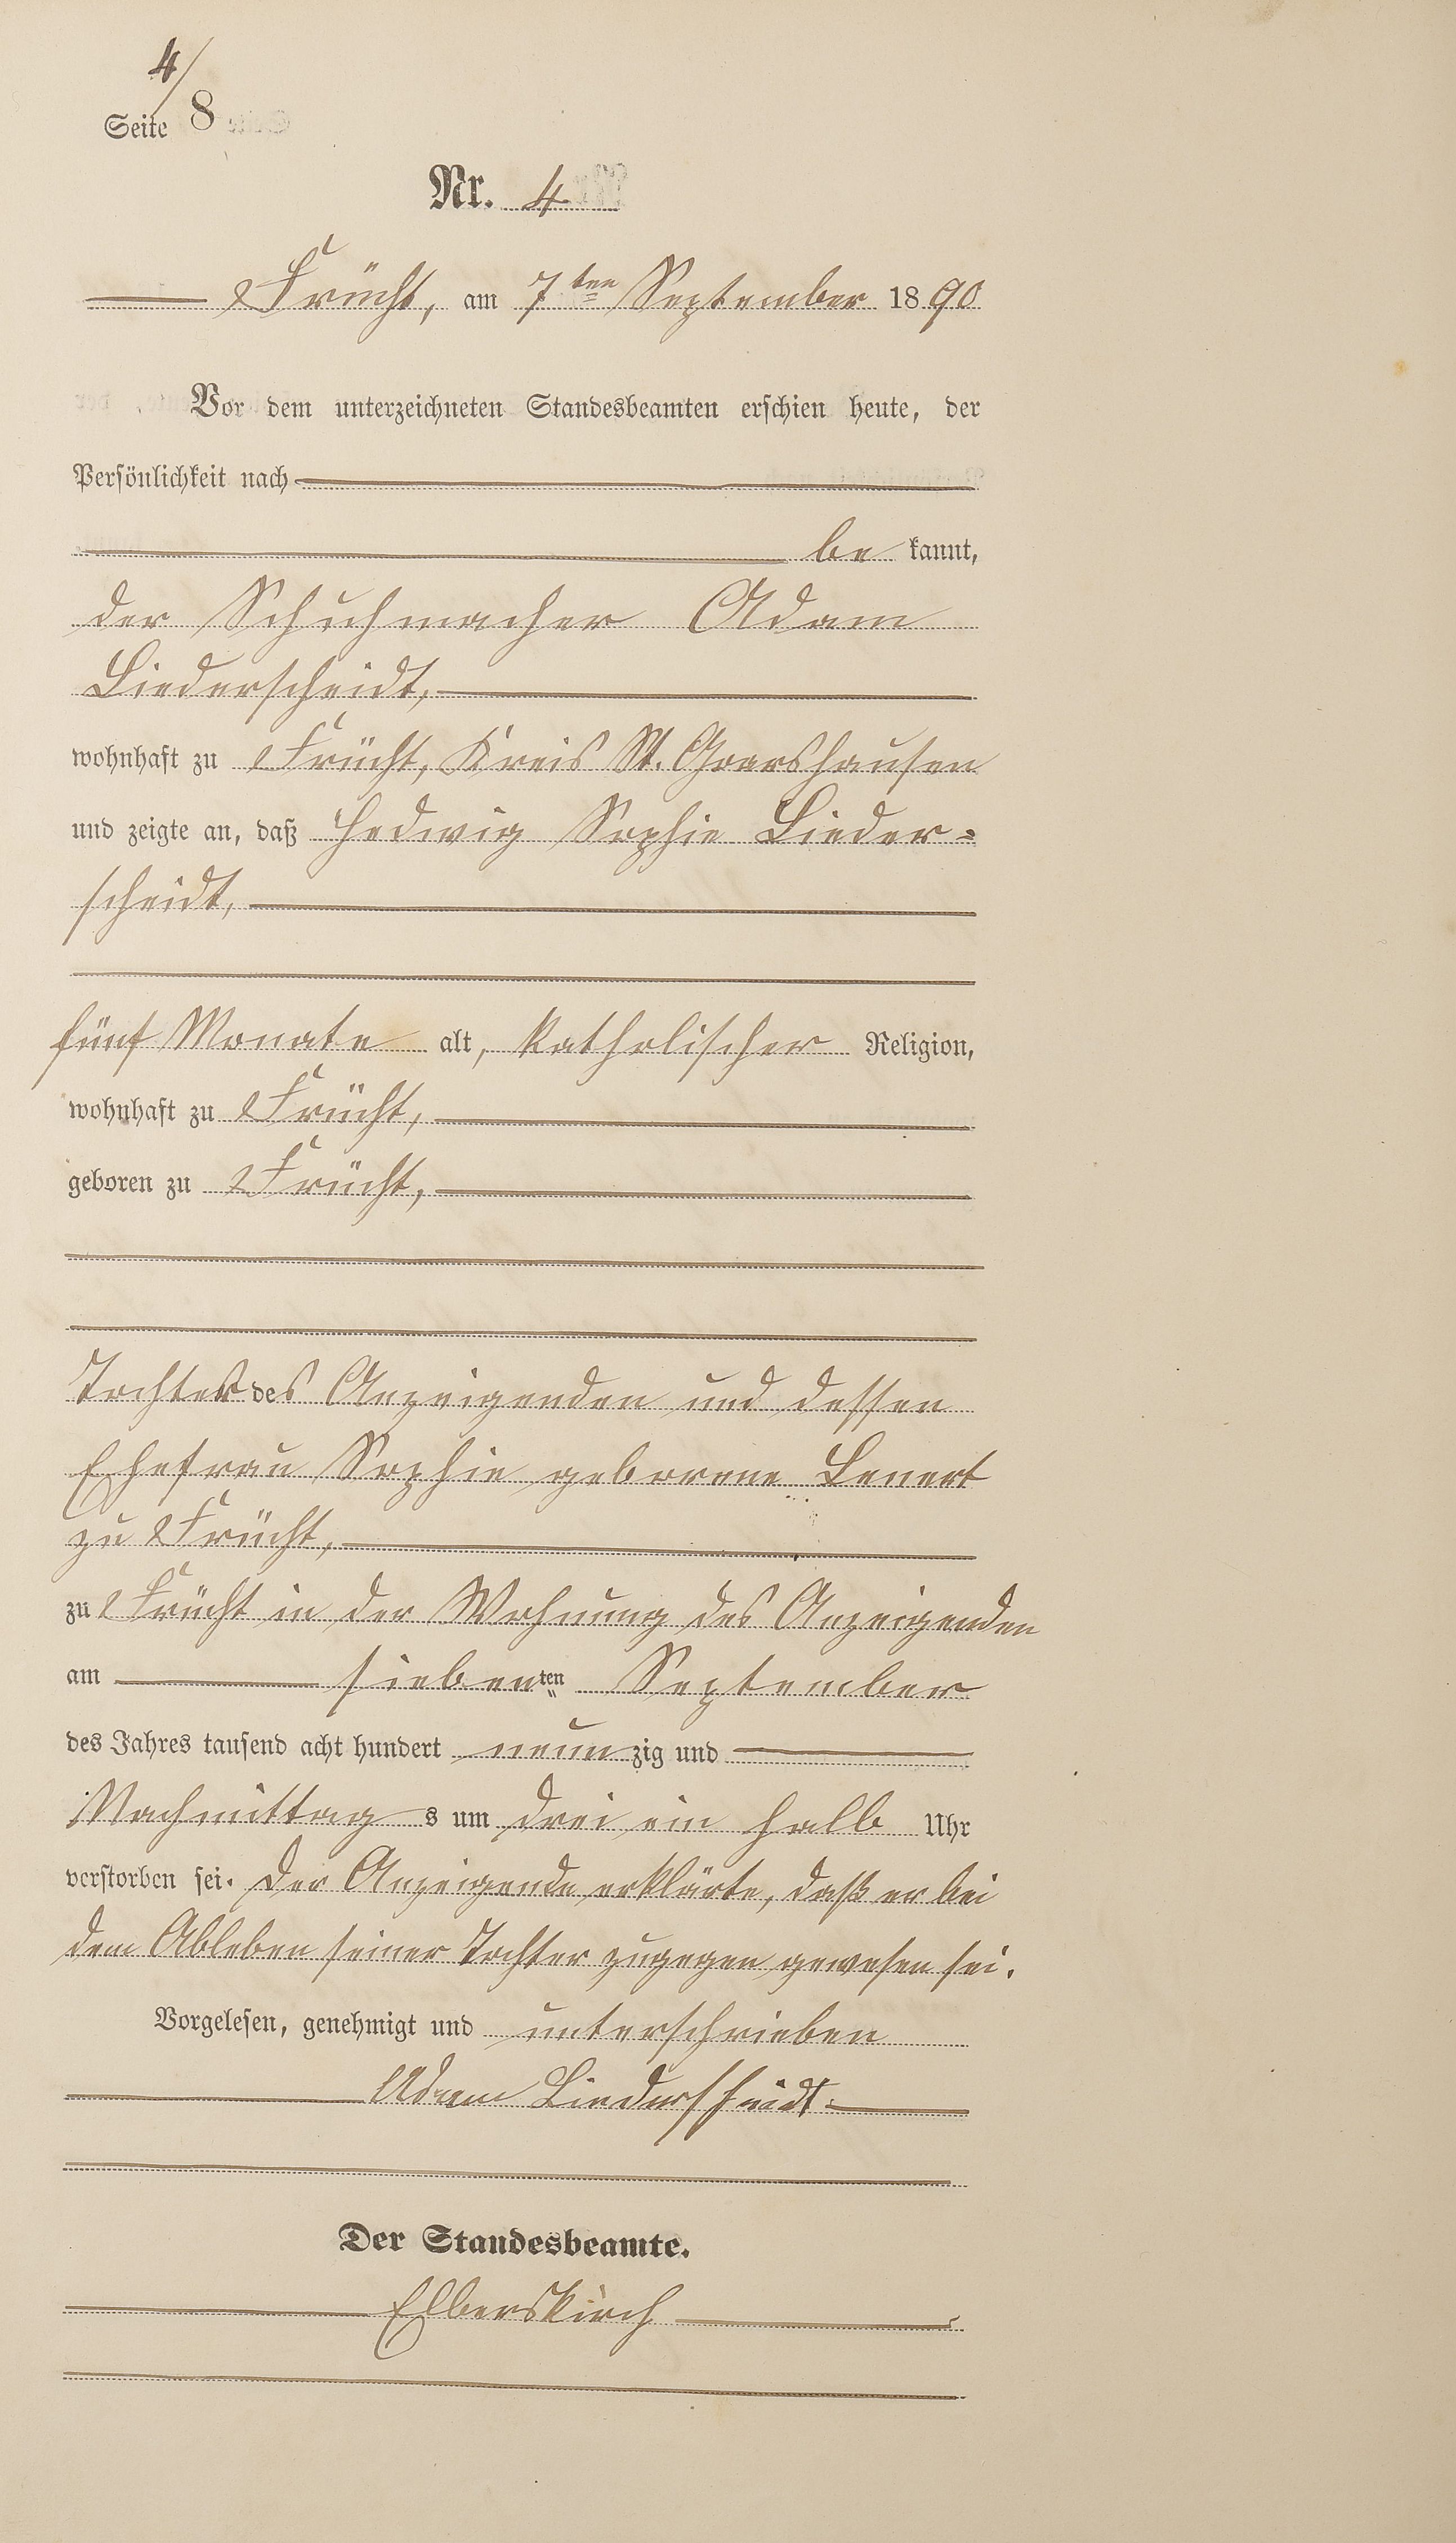 4/
Seite 8
Nr. 4
Frücht, am 7ten September 1890
Vor dem unterzeichneten Standesbeamten erschien heute, der
Persönlichkeit nach
be kannt,
der Schuhmacher Adam
Liederscheidt,
wohnhaft zu Frücht, Kreis St. Goarshausen
und zeigte an, daß Hedwig Sophie Lieder=
scheidt,
fünf Monate alt, katholischer Religion,
wohnhaft zu Frücht,
geboren zu Frücht,
Tochter des Anzeigenden und dessen
Ehefrau Sophie geborene Lenert
zu Frücht,
zu Frücht in der Wohnung des Anzeigenden
am siebenten September
des Jahres tausend acht hundert neunzig und
Nachmittags um drei ein halb Uhr
verstorben sei. Der Anzeigende erklärte, daß er bei
dem Ableben seiner Tochter zugegen gewesen sei.
Vorgelesen, genehmigt und unterschrieben
Adam Liederscheidt.
Der Standesbeamte.
Elberskirch